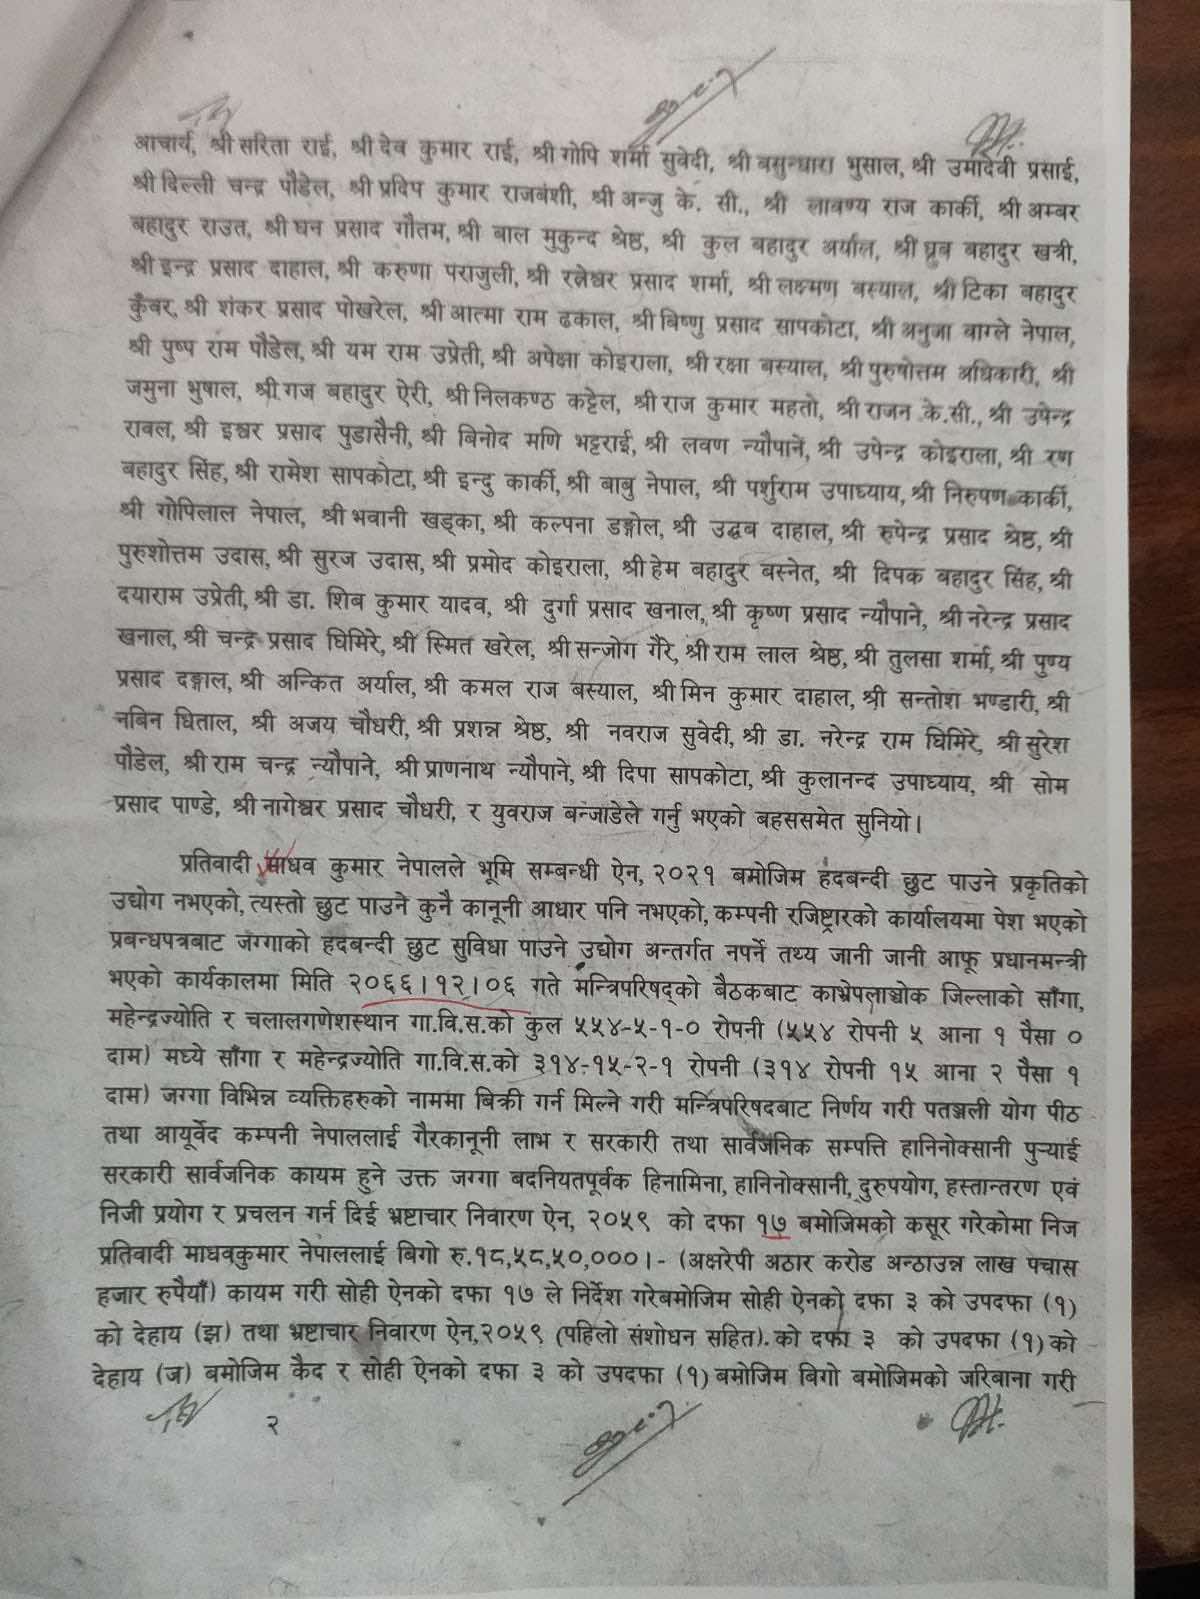 आचार्य, श्री सरिता राई, श्री देव कुमार राई, श्री गोपि शर्मा सुवेदी, श्री बसुन्धारा भुसाल, श्री उमादेवी प्रसाई,
श्री दिल्ली चन्द्र पौडेल, श्री प्रदिप कुमार राजबंशी, श्री अन्जु के. सी., श्री लावण्य राज कार्की, श्री अम्बर
बहादुर राउत, श्री घन प्रसाद गौतम, श्री बाल मुकुन्द श्रेष्ठ, श्री कुल बहादुर अर्याल, श्री ध्रुब बहादुर खत्री,
श्री इन्द्र प्रसाद दाहाल, श्री करुणा पराजुली, श्री रत्नेश्वर प्रसाद शर्मा, श्री लक्ष्मण बस्याल, श्री टिका बहादुर
कुँवर, श्री शंकर प्रसाद पोखरेल, श्री आत्मा राम ढकाल, श्री बिष्णु प्रसाद सापकोटा, श्री अनुजा वाग्ले नेपाल,
श्री पुष्प राम पौडेल, श्री यम राम उप्रेती, श्री अपेक्षा कोइराला, श्री रक्षा बस्याल, श्री पुरुषोत्तम अधिकारी, श्री
जमुना भुषाल, श्री गज बहादुर ऐरी, श्री निलकण्ठ कट्टेल, श्री राज कुमार महतो, श्री राजन के.सी., श्री उपेन्द्र
रावल, श्री इश्वर प्रसाद पुडासैनी, श्री बिनोद मणि भट्टराई, श्री लवण न्यौपाने, श्री उपेन्द्र कोइराला, श्री रण
बहादुर सिंह, श्री रामेश सापकोटा, श्री इन्दु कार्की, श्री बाबु नेपाल, श्री पर्शुराम उपाघ्याय, श्री निरुपण कार्की,
श्री गोपिलाल नेपाल, श्री भवानी खड्का, श्री कल्पना डङ्गोल, श्री उद्धब दाहाल, श्री रुपेन्द्र प्रसाद श्रेष्ठ, श्री
पुरुशोत्तम उदास, श्री सुरज उदास, श्री प्रमोद कोइराला, श्री हेम बहादुर बस्नेत, श्री दिपक बहादुर सिंह, श्री
दयाराम उप्रेती, श्री डा. शिब कुमार यादव, श्री दुर्गा प्रसाद खनाल, श्री कृष्ण प्रसाद न्यौपाने, श्री नरेन्द्र प्रसाद
खनाल, श्री चन्द्र प्रसाद घिमिरे, श्री स्मित खरेल, श्री सन्जोग गैरे, श्री राम लाल श्रेष्ठ, श्री तुलसा शर्मा, श्री पुण्य
प्रसाद दङ्गाल, श्री अन्कित अर्याल, श्री कमल राज बस्याल, श्री मिन कुमार दाहाल, श्री सन्तोश भण्डारी, श्री
नबिन धिताल, श्री अजय चौधरी, श्री प्रशन्न श्रेष्ठ, श्री नवराज सुवेदी, श्री डा. नरेन्द्र राम घिमिरे, श्री सुरेश
पौडेल, श्री राम चन्द्र न्यौपाने, श्री प्राणनाथ न्यौपाने, श्री दिपा सापकोटा, श्री कुलानन्द उपाघ्याय, श्री सोम
प्रसाद पाण्डे, श्री नागेश्वर प्रसाद चौधरी, र युवराज बन्जाडेले गर्नु भएको बहससमेत सुनियो।
प्रतिवादी माधव कुमार नेपालले भूमि सम्बन्धी ऐन, २०२१ बमोजिम हदबन्दी छुट पाउने प्रकृतिको
उद्योग नभएको, त्यस्तो छुट पाउने कुनै कानूनी आधार पनि नभएको, कम्पनी रजिष्ट्रारको कार्यालयमा पेश भएको
प्रबन्धपत्रबाट जग्गाको हदबन्दी छुट सुविधा पाउने उद्योग अन्तर्गत नपर्ने तथ्य जानी जानी आफू प्रधानमन्त्री
भएको कार्यकालमा मिति २०६६।१२।०६ गते मन्त्रिपरिषद्को बैठकबाट काभ्रेपलाञ्चोक जिल्लाको साँगा,
महेन्द्रज्योति र चलालगणेशस्थान गा.वि.स.को कुल ५५४-५-१-० रोपनी (५५४ रोपनी ५ आना १ पैसा ०
दाम) मध्ये साँगा र महेन्द्रज्योति गा.वि.स.को ३१४-१५-२-१ रोपनी (३१४ रोपनी १५ आना २ पैसा १
दाम) जग्गा विभिन्न व्यक्तिहरुको नाममा बिक्री गर्न मिल्ने गरी मन्त्रिपरिषदबाट निर्णय गरी पतञ्जली योग पीठ
तथा आयूर्वेद कम्पनी नेपाललाई गैरकानूनी लाभ र सरकारी तथा सार्वजनिक सम्पत्ति हानिनोक्सानी पुर्‍याई
सरकारी सार्वजनिक कायम हुने उक्त जग्गा बदनियतपूर्वक हिनामिना, हानिनोक्सानी, दुरुपयोग, हस्तान्तरण एवं
निजी प्रयोग र प्रचलन गर्न दिई भ्रष्टाचार निवारण ऐन, २०५९ को दफा १७ बमोजिमको कसूर गरेकोमा निज
प्रतिवादी माधवकुमार नेपाललाई बिगो रु.१८,५८,५०,०००।- (अक्षरेपी अठार करोड अन्ठाउन्न लाख पचास
हजार रुपैयाँ) कायम गरी सोही ऐनको दफा १७ ले निर्देश गरेबमोजिम सोही ऐनको दफा ३ को उपदफा (१)
को देहाय (झ) तथा भ्रष्टाचार निवारण ऐन,२०५९ (पहिलो संशोधन सहित). को दफा ३ को उपदफा (१) को
देहाय (ज) बमोजिम कैद र सोही ऐनको दफा ३ को उपदफा (१) बमोजिम बिगो बमोजिमको जरिबाना गरी
२